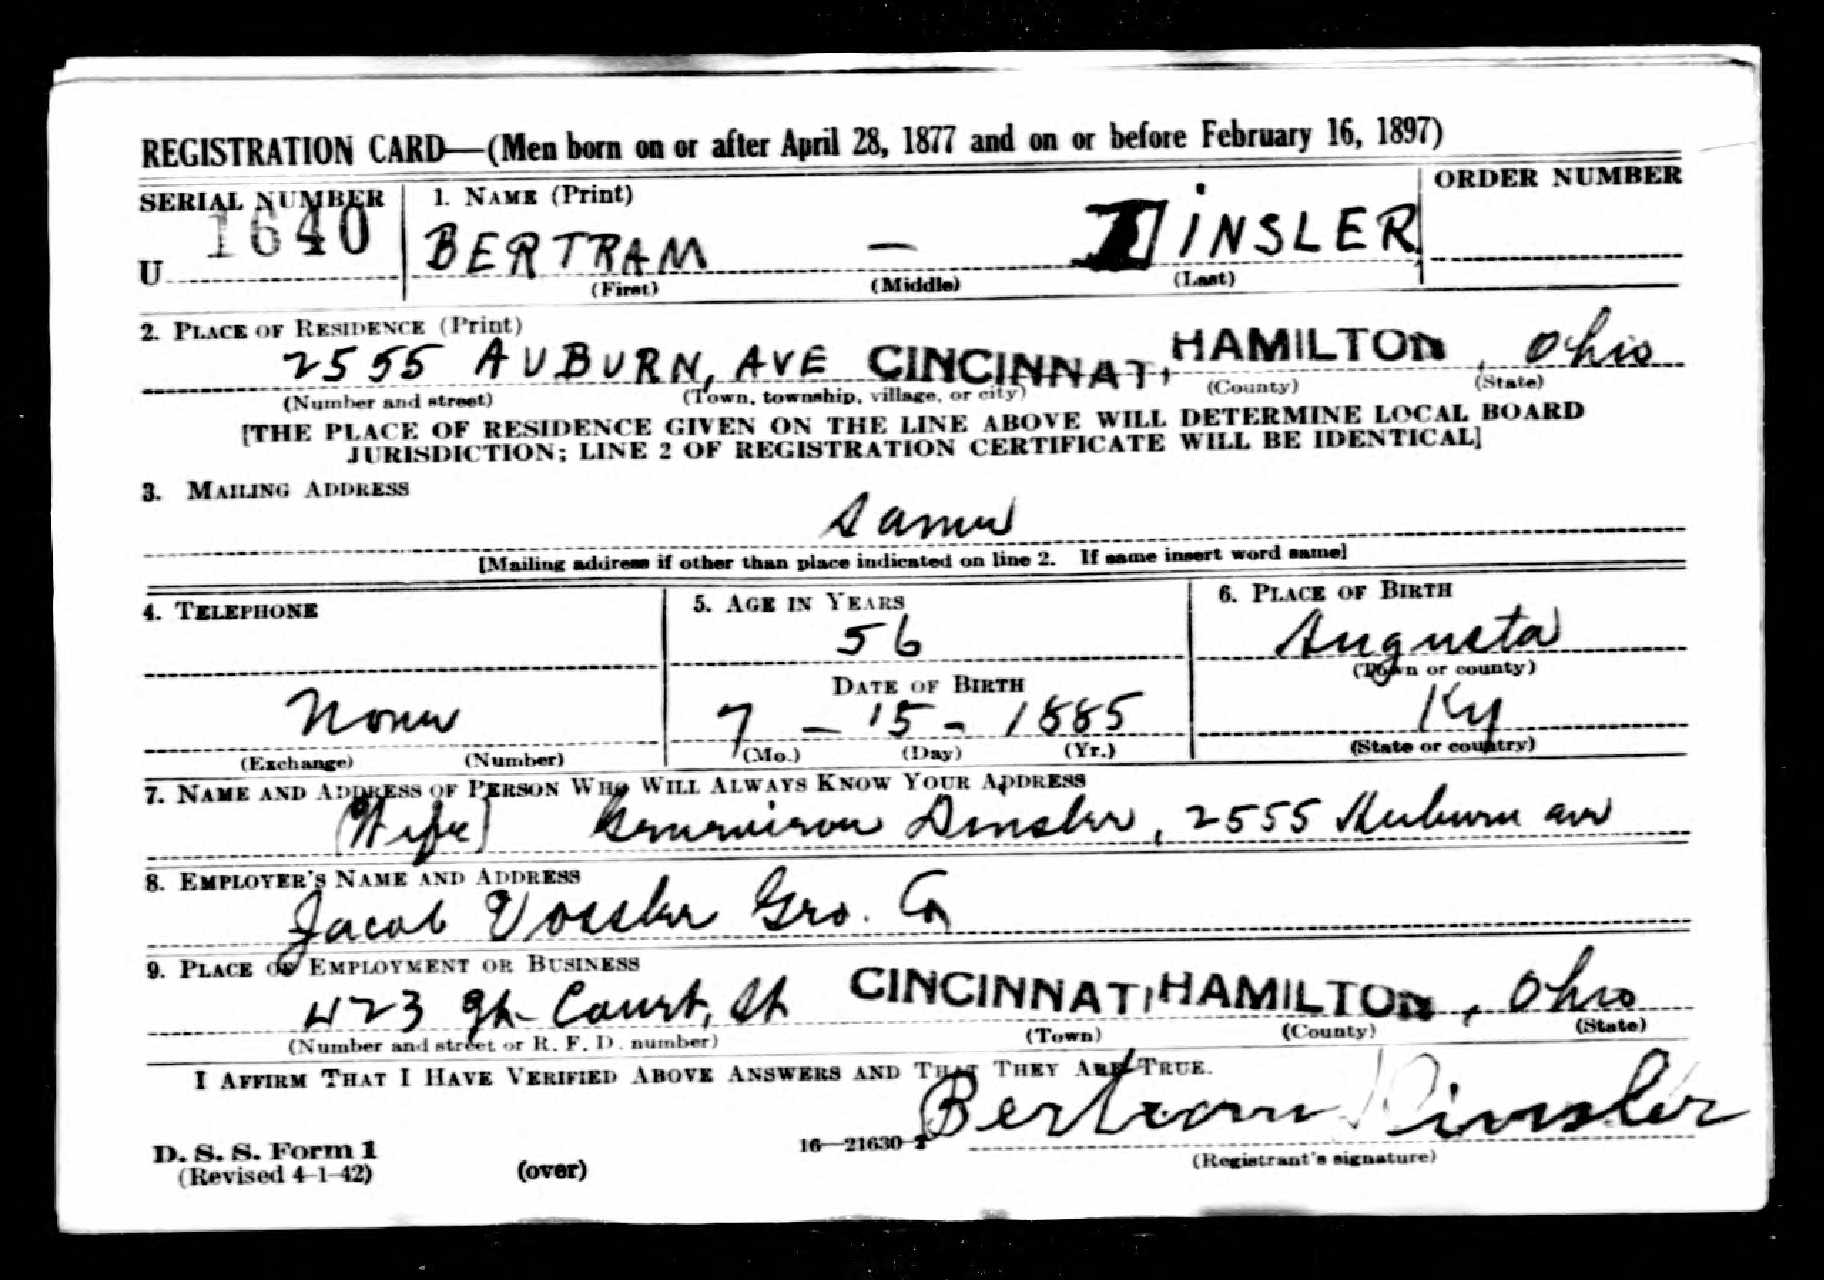 REGISTRATION CARD—(Men born on or after April 28, 1877 and on or before February 16, 1897)
SERIAL NUMBER 1. NAME (Print) ORDER NUMBER
U 1640 BERTRAM — DINSLER
(First) (Middle) (Last)
2. PLACE OF RESIDENCE (Print)
2555 AUBURN, AVE CINCINNATI HAMILTON, Ohio
(Number and street) (Town, township, village, or city) (County) (State)
[THE PLACE OF RESIDENCE GIVEN ON THE LINE ABOVE WILL DETERMINE LOCAL BOARD
JURISDICTION; LINE 2 OF REGISTRATION CERTIFICATE WILL BE IDENTICAL]
3. MAILING ADDRESS
Same
[Mailing address if other than place indicated on line 2. If same insert word same]
4. TELEPHONE 5. AGE IN YEARS 6. PLACE OF BIRTH
56 Augusta
(Town or county)
DATE OF BIRTH
None 7 – 15 – 1885 Ky
(Exchange) (Number) (Mo.) (Day) (Yr.) (State or country)
7. NAME AND ADDRESS OF PERSON WHO WILL ALWAYS KNOW YOUR ADDRESS
(Wife) Dinsler, 2555 Auburn ave
8. EMPLOYER'S NAME AND ADDRESS
Jacob Vossler Gro. Co
9. PLACE OF EMPLOYMENT OR BUSINESS
423 Court, St CINCINNATI HAMILTON, Ohio
(Number and street or R. F. D. number) (Town) (County) (State)
I AFFIRM THAT I HAVE VERIFIED ABOVE ANSWERS AND THAT THEY ARE TRUE.
Bertram Dinsler
D. S. S. Form 1 16—21630-2 (Registrant's signature)
(Revised 4-1-42) (over)